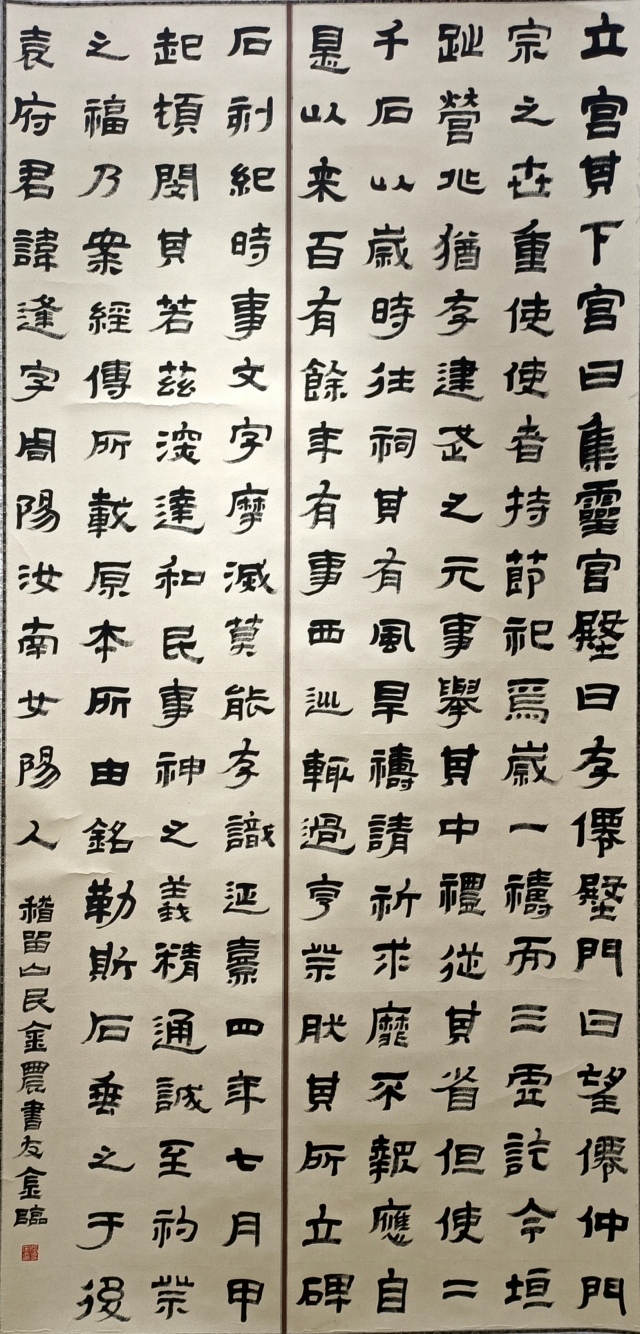 立宮其下宮曰集靈宮壂曰存僊壂門曰望僊仲門
宗之世重使使者持節祀焉歲一禱而三虛訖今垣
趾營兆猶存建武之元事舉其中禮從其省但使二
千石以歲時往祠其有風旱禱請祈求靡不報應自
是以来百有餘年有事西巡輒過亨祭然其所立碑
石刻紀時事文字摩滅莫能存識延熹四年七月甲
起頓閔其若茲深達和民事神之義精通誠至礿祭
之福乃案經傳所載原本所由銘勒斯石垂之于後
袁府君諱逢字周陽汝南女陽人
稽留山民金農書友金臨